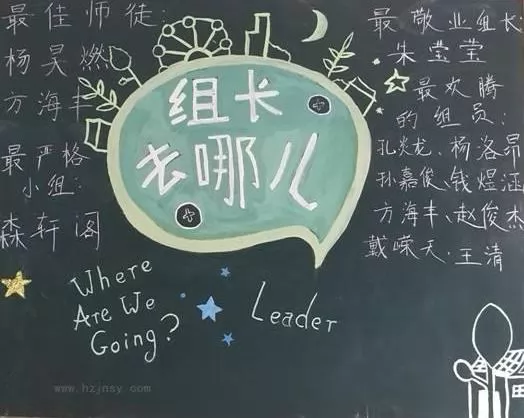 最佳师徒:
杨昊燃
方海丰
最严格
小组:
森轩阁
组长
去哪儿
最敬业组长
朱莹莹
最欢腾
的组员:
孔炎龙、杨洛昂
孙嘉俊、钱煜涵
方海丰、赵俊杰
戴嵘天、王清
Where
Are We
Going?
Leader
www.hzjnsy.com